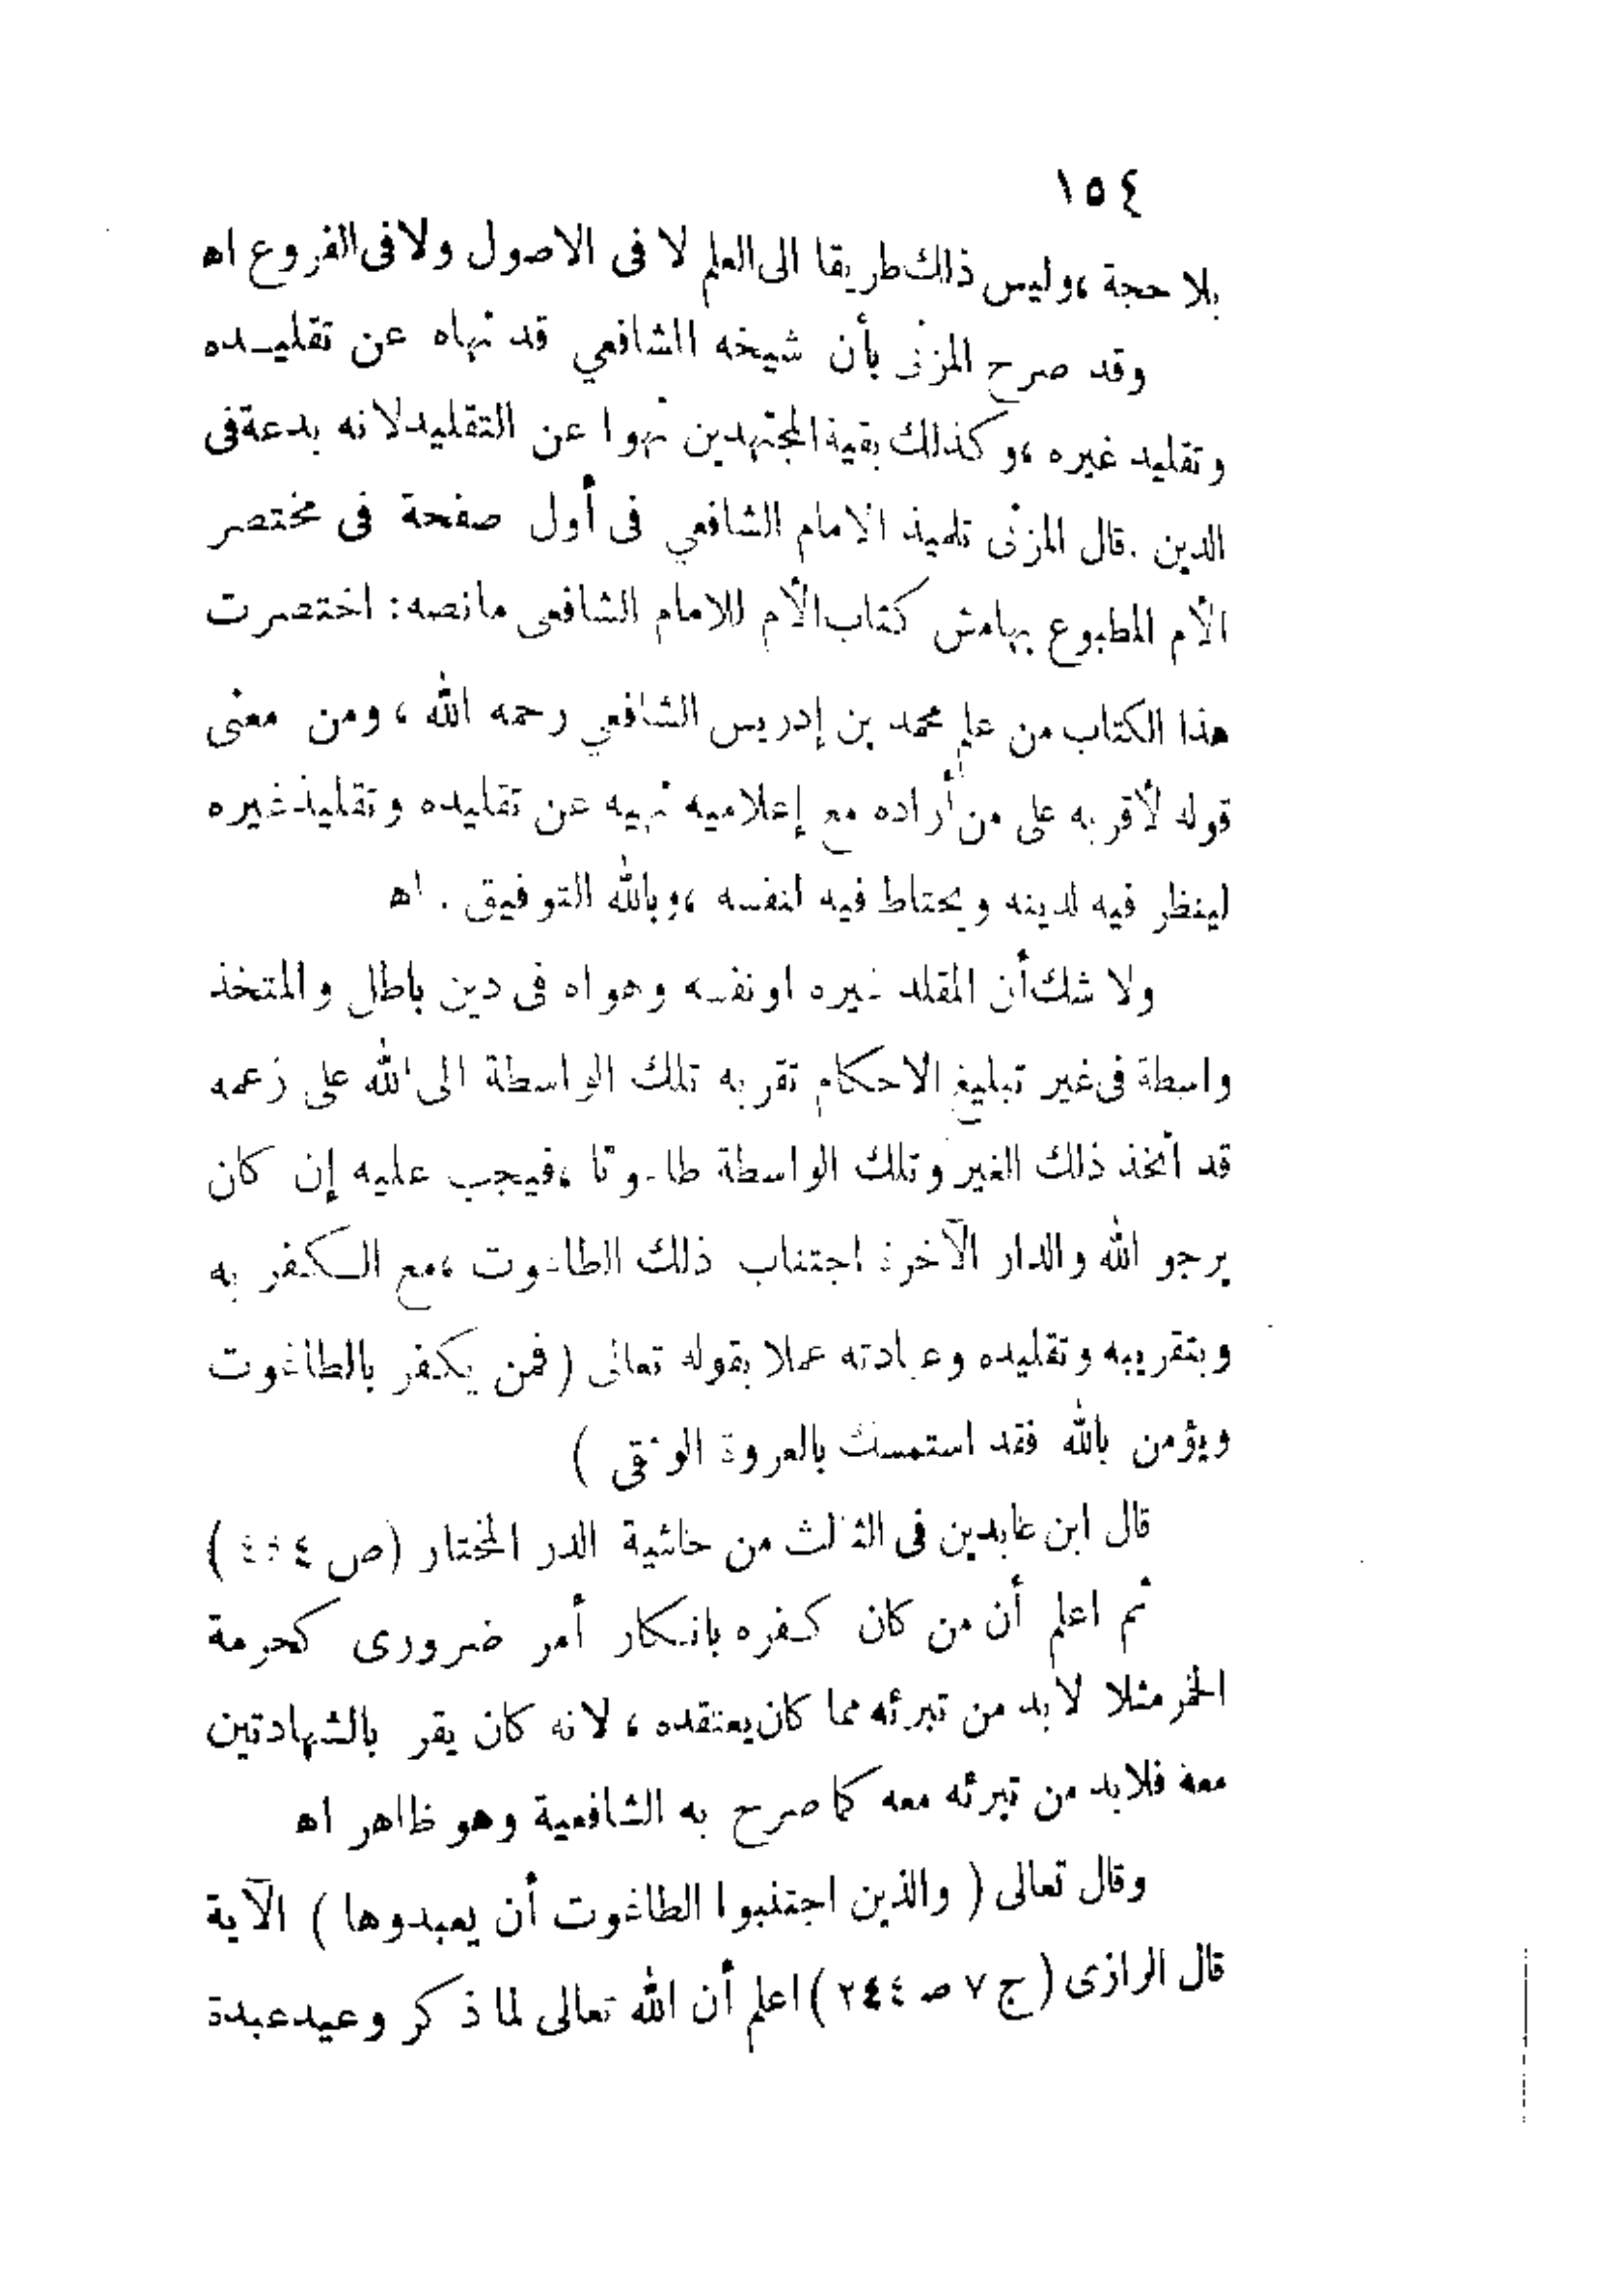 ١٥٤
بلا حجة ،وليس ذلك طريقا الى العلم لا فى الاصول ولا فى الفروع اه
وقد صرح المزنى بأن شيخه الشافعي قد نهاه عن تقليـده
وتقليد غيره ،وكذلك بقية المجتهدين نهوا عن التقليد لانه بدعة فى
الدين .قال المزنى تلميذ الامام الشافعي فى أول صفحة فى مختصر
الأم المطبوع بهامش كتاب الأم للامام الشافعى مانصه: اختصرت
هذا الكتاب من علم محمد بن إدريس الشافعي رحمه الله ، ومن معنى
قوله لأقربه على من أراده مع إعلاميه نهيه عن تقليده وتقليد غيره
لينظر فيه لدينه ويحتاط فيه لنفسه ،وبالله التوفيق . اه
ولا شك أن المقلد غيره او نفسه وهواه فى دين باطل والمتخذ
واسطة فى غير تبليغ الاحكام تقربه تلك الواسطة الى الله على زعمه
قد اتخذ ذلك الغير وتلك الواسطة طاغوتا ،فيجب عليه إن كان
يرجو الله والدار الآخرة اجتناب ذلك الطاغوت ،مع الـكفر به
وبتقريبه وتقليده وعبادته عملا بقوله تعالى ( فمن يكفر بالطاغوت
ويؤمن بالله فقد استمسك بالعروة الوثقى )
قال ابن عابدين فى الثالث من حاشية الدر المختار (ص )
ثم اعلم أن من كان كـفره بانـكار أمر ضرورى كحرمة
الخمر مثلا لابد من تبرئه مما كان يعتقده ، لانه كان يقر بالشهادتين
معه فلابد من تبرئه معه كما صرح به الشافعية وهو ظاهر اه
وقال تعالى ( والذين اجتنبوا الطاغوت أن يعبدوها ) الآية
قال الرازى ( ج ٧ ص ٢٤٤ ) اعلم أن الله تعالى لما ذكر وعيد عبدة